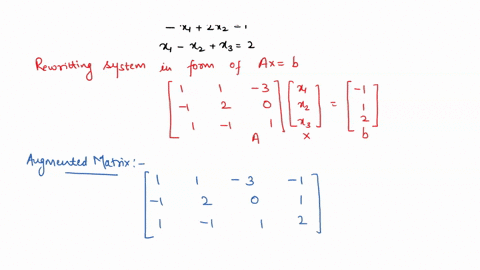 - x₁ + 2x₂ = 1
x₁ - x₂ + x₃ = 2
Rewritting system in form of Ax = b
[ 1 1 -3 ] [ x₁ ] = [ -1 ]
[ -1 2 0 ] [ x₂ ] [ 1 ]
[ 1 -1 1 ] [ x₃ ] [ 2 ]
A x b
Augmented Matrix:-
[ 1 1 -3 -1 ]
[ -1 2 0 1 ]
[ 1 -1 1 2 ]